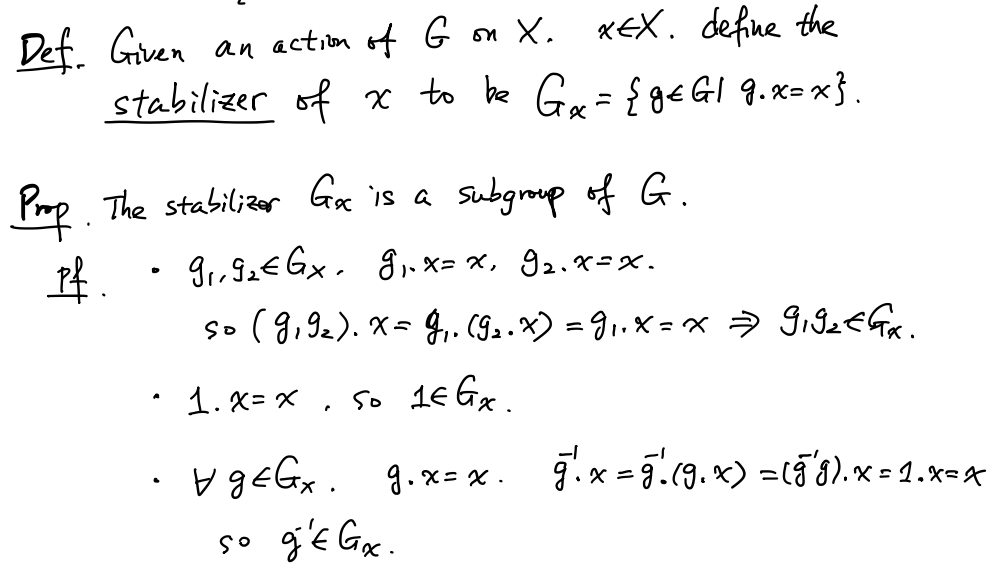 Def. Given an action of G on X. x∈X. define the
stabilizer of x to be Gₓ = {g∈G | g.x=x}.
Prop. The stabilizer Gₓ is a subgroup of G.
pf. • g₁,g₂∈Gₓ. g₁.x=x, g₂.x=x.
so (g₁g₂).x = g₁.(g₂.x) = g₁.x = x ⇒ g₁g₂∈Gₓ.
• 1.x=x, so 1∈Gₓ.
• ∀ g∈Gₓ. g.x=x. g⁻¹.x = g⁻¹.(g.x) = (g⁻¹g).x = 1.x=x
so g⁻¹∈Gₓ.